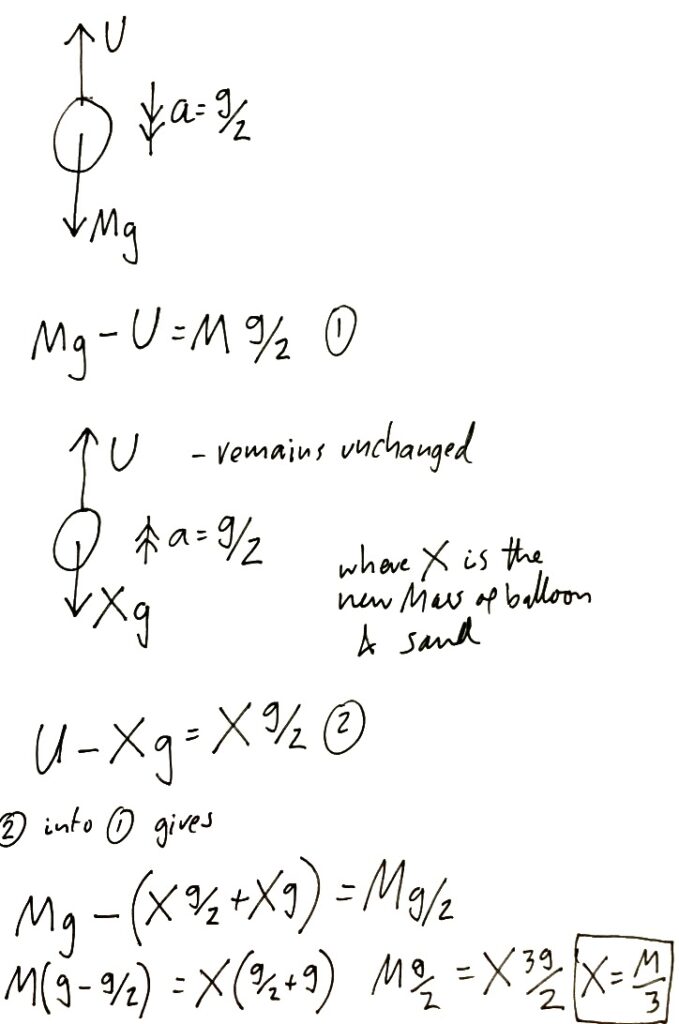 U
a = g/2
Mg
Mg - U = M g/2 ①
U - remains unchanged
a = g/2
Xg
where X is the
new Mass of balloon
& sand
U - Xg = X g/2 ②
② into ① gives
Mg - (X g/2 + Xg) = Mg/2
M(g - g/2) = X(g/2 + g) M g/2 = X 3g/2 X = M/3